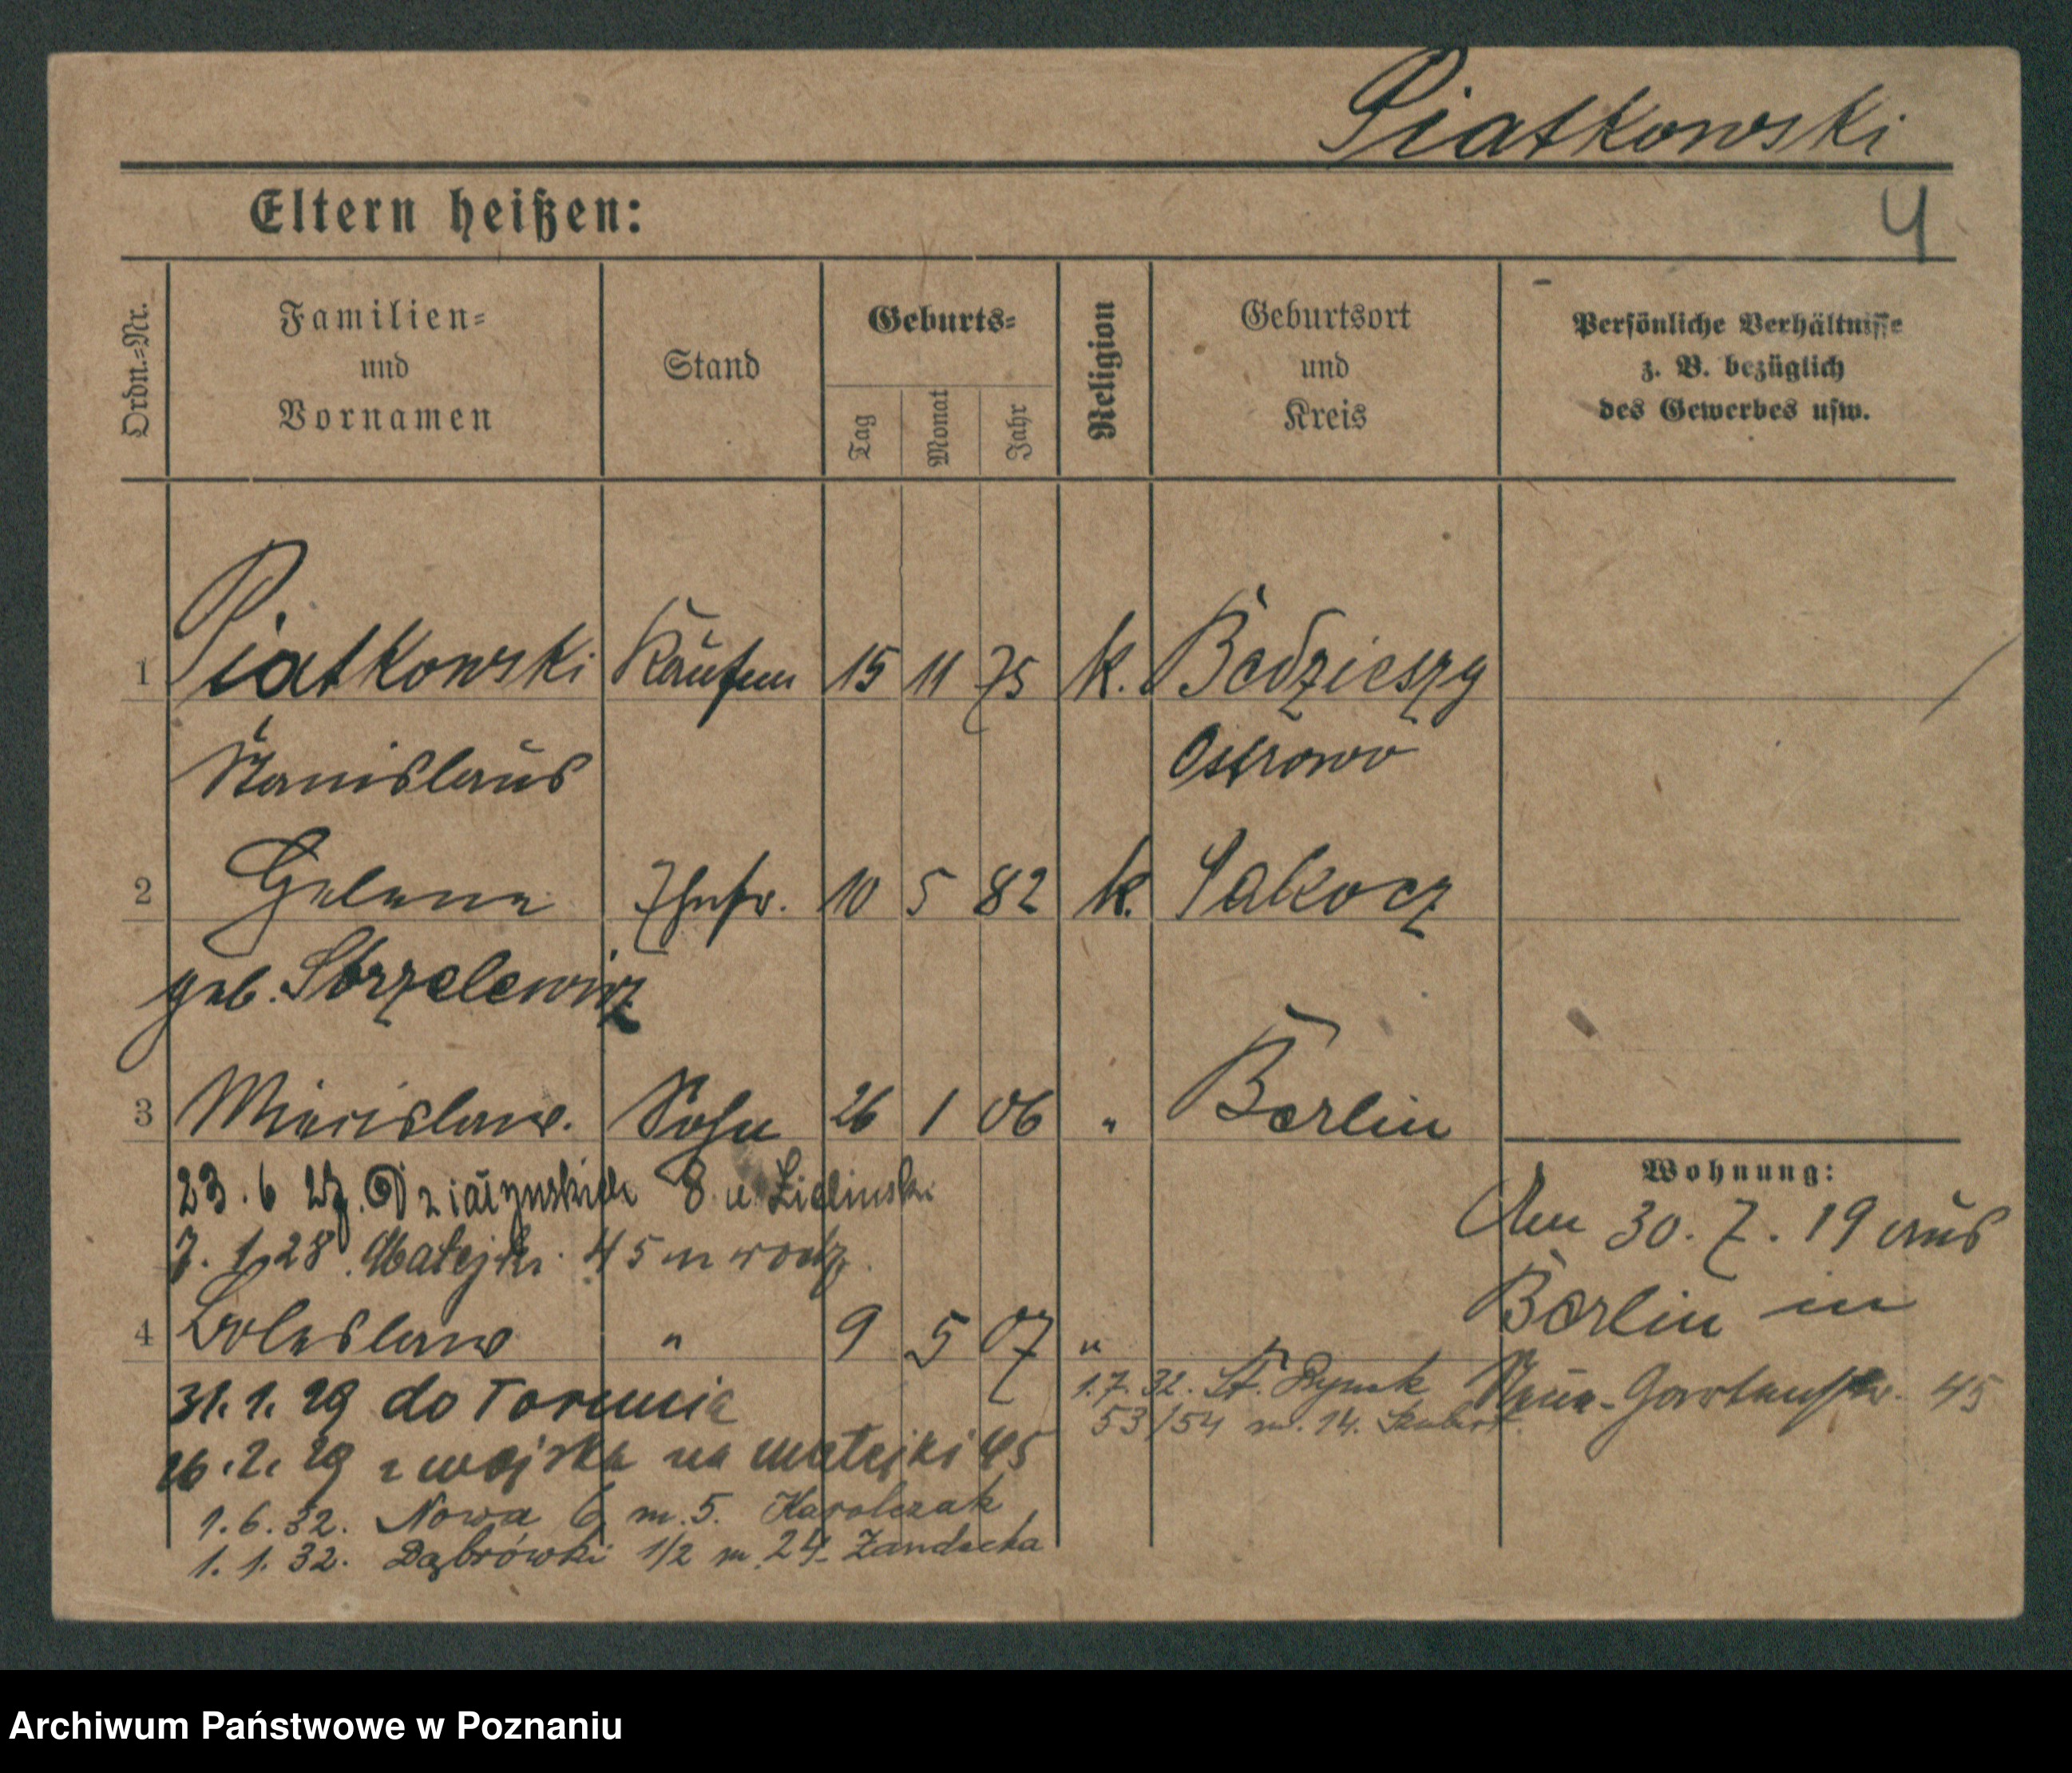 Piatkowski
Eltern heißen:
4
Ordn.-Nr.
Familien-
und
Vornamen
Stand
Geburts-
Tag
Monat
Jahr
Religion
Geburtsort
und
Kreis
Persönliche Verhältnisse
z. B. bezüglich
des Gewerbes usw.
1 Piatkowski Kaufm 15 11 75 k.
Stanislaus Ostrowo
2 Helena Ehefr. 10 5 82 k.
geb. Strzelewicz
3 Miecislaus. Sohn 26 1 06 " Berlin
23. 6 27. 8 u. Zielinski
7. 1. 28. Matejki 45 m rodz.
4 Boleslaus " 9 5 07 "
31. 1. 29 do Torunia
26. 2. 29 z wojska na matejki 45
1. 6. 32. Nowa 6 m. 5. Karolczak
1. 1. 32. Dąbrówki 1/2 m. 24.
1. 7. 32. St. Rynek
53/54 m. 14.
Wohnung:
Am 30. 7. 19 aus
Berlin in
Neue-Gartenstr. 45
Archiwum Państwowe w Poznaniu